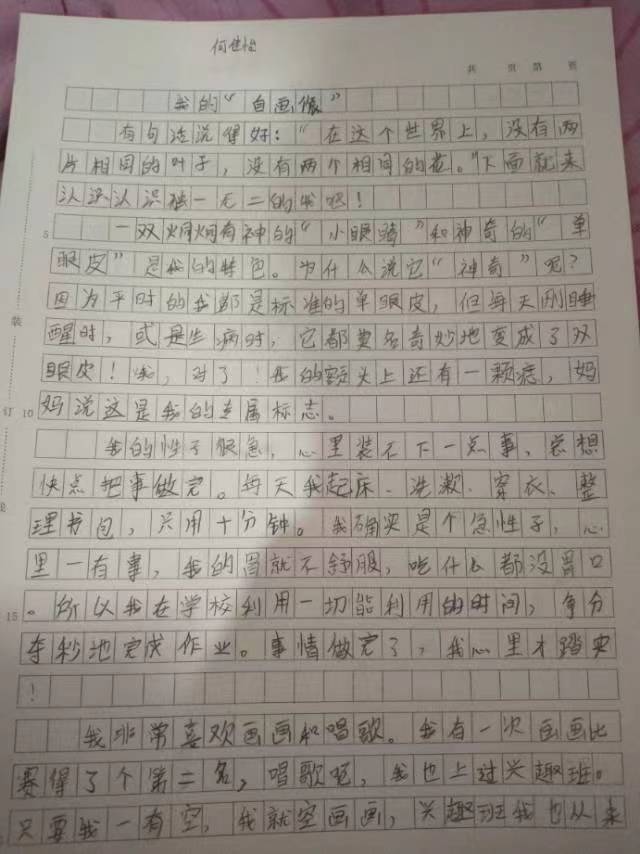 何佳怡
共 页 第 页
我的“自画像”
有句话说得好：“在这个世界上，没有两
片相同的叶子，没有两个相同的花。”下面就来
认识认识独一无二的我吧！
5 一双炯炯有神的“小眼睛”和神奇的“单
眼皮”是我的特色。为什么说它“神奇”呢？
因为平时的我都是标准的单眼皮，但每天刚睡
醒时，或是生病时，它都莫名奇妙地变成了双
眼皮！哦，对了！我的额头上还有一颗痣，妈
10 妈说这是我的专属标志。
我的性子很急，心里装不下一点事，总想
快点把事做完。每天我起床、洗漱、穿衣、整
理书包，只用十分钟。我确实是个急性子，心
里一有事，我的胃就不舒服，吃什么都没胃口
15 。所以我在学校利用一切能利用的时间，争分
夺秒地完成作业。事情做完了，我心里才踏实
！
我非常喜欢画画和唱歌。我有一次画画比
赛得了个第二名，唱歌呢，我也上过兴趣班。
只要我一有空，我就空画画，兴趣班我也从来
装
订
线